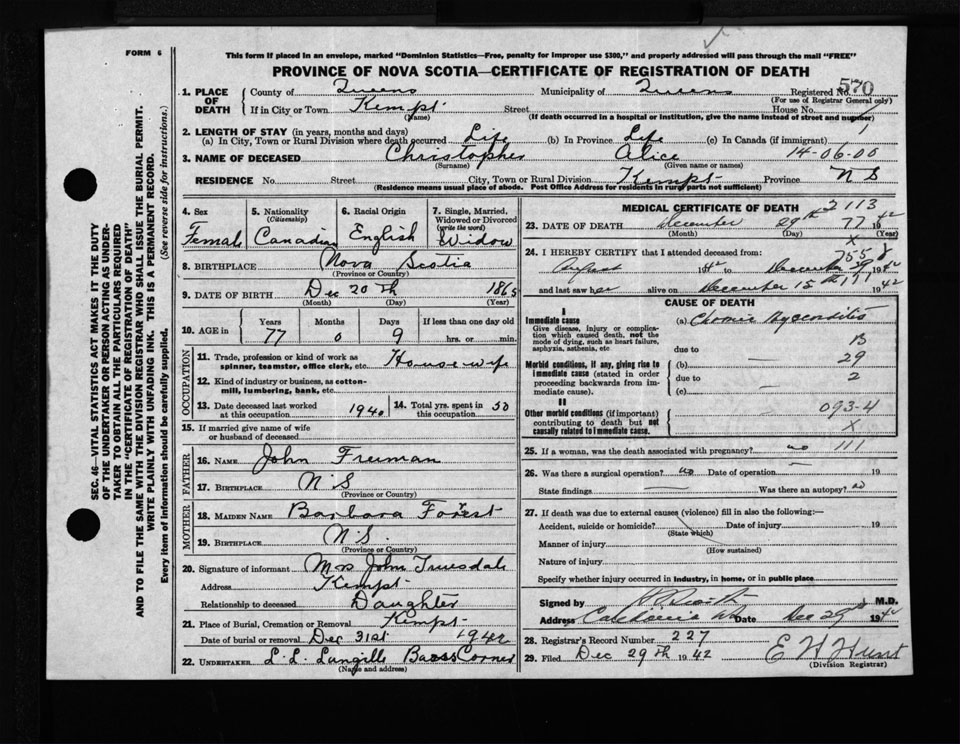 FORM 6
This form if placed in an envelope, marked "Dominion Statistics—Free, penalty for improper use $300," and properly addressed will pass through the mail "FREE"
PROVINCE OF NOVA SCOTIA—CERTIFICATE OF REGISTRATION OF DEATH
SEC. 46—VITAL STATISTICS ACT MAKES IT THE DUTY
OF THE UNDERTAKER OR PERSON ACTING AS UNDER-
TAKER TO OBTAIN ALL THE PARTICULARS REQUIRED
IN THE "CERTIFICATE OF REGISTRATION OF DEATH"
AND TO FILE THE SAME WITH THE DIVISION REGISTRAR WHO SHALL ISSUE THE BURIAL PERMIT.
WRITE PLAINLY WITH UNFADING INK. THIS IS A PERMANENT RECORD.
Every item of information should be carefully supplied. (See reverse side for instructions.)
1. PLACE OF DEATH County of Queens Municipality of Queens Registered No. 570
(For use of Registrar General only)
If in City or Town Kempt Street House No.
(Name) (If death occurred in a hospital or institution, give the name instead of street and number)
2. LENGTH OF STAY (in years, months and days) 1
(a) In City, Town or Rural Division where death occurred Life (b) In Province Life (c) In Canada (if immigrant)
3. NAME OF DECEASED Christopher Alice 14-06-00
(Surname) (Given name or names)
RESIDENCE No. Street City, Town or Rural Division Kempt Province N S
(Residence means usual place of abode. Post Office Address for residents in rural parts not sufficient)
4. Sex Femal
5. Nationality (Citizenship) Canadian
6. Racial Origin English
7. Single, Married, Widowed or Divorced (write the word) Widow
8. BIRTHPLACE Nova Scotia
(Province or Country)
9. DATE OF BIRTH Dec 20th 1865
(Month) (Day) (Year)
10. AGE in Years Months Days If less than one day old
77 0 9 hrs. or min.
OCCUPATION
11. Trade, profession or kind of work as spinner, teamster, office clerk, etc. Housewife
12. Kind of industry or business, as cotton-mill, lumbering, bank, etc.
13. Date deceased last worked at this occupation 1940
14. Total yrs. spent in this occupation 50
15. If married give name of wife or husband of deceased
FATHER
16. NAME John Freeman
17. BIRTHPLACE N S
(Province or Country)
MOTHER
18. MAIDEN NAME Barbara Forest
19. BIRTHPLACE N S.
(Province or Country)
20. Signature of informant Mrs John Truesdale
Address Kempt
Relationship to deceased Daughter
21. Place of Burial, Cremation or Removal Kempt
Date of burial or removal Dec 31st 1942
22. UNDERTAKER L. L. Langille Barss Corner
(Name and address)
MEDICAL CERTIFICATE OF DEATH 2113
23. DATE OF DEATH December 29th 77 42
(Month) (Day) (Year)
X
24. I HEREBY CERTIFY that I attended deceased from: 7558
August 1942 to December 29 1942
and last saw her alive on December 15th 111 1942
CAUSE OF DEATH
I
Immediate cause
Give disease, injury or complication which caused death, not the mode of dying, such as heart failure, asphyxia, asthenia, etc
(a) Chronic Myocarditis
due to 13
Morbid conditions, if any, giving rise to immediate cause (stated in order proceeding backwards from immediate cause).
(b) 29
due to 2
(c)
II
Other morbid conditions (if important) contributing to death but not causally related to immediate cause.
093-4
X
25. If a woman, was the death associated with pregnancy? no 111
26. Was there a surgical operation? no Date of operation 19
State findings Was there an autopsy? no
27. If death was due to external causes (violence) fill in also the following:—
Accident, suicide or homicide? Date of injury 19
(State which)
Manner of injury
(How sustained)
Nature of injury
Specify whether injury occurred in industry, in home, or in public place
Signed by M.D.
Address Caledonia Date Dec 29 1942
28. Registrar's Record Number 227
29. Filed Dec 29th 1942 E H Hunt
(Division Registrar)